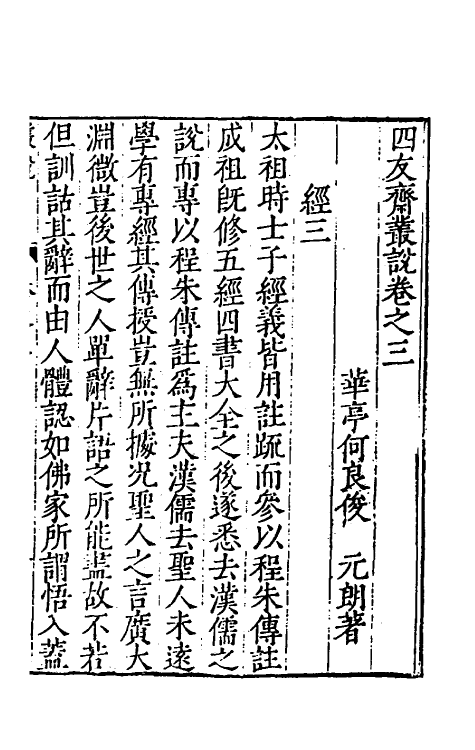 四友齋叢說卷之三
華亭何良俊　元朗著
經三
太祖時士子經義皆用註疏而參以程朱傳註
成祖旣修五經四書大全之後遂悉去漢儒之
說而專以程朱傳註爲主夫漢儒去聖人未遠
學有專經其傳授豈無所據况聖人之言廣大
淵微豈後世之人單辭片語之所能盡故不若
但訓詁其辭而由人體認如佛家所謂悟入蓋